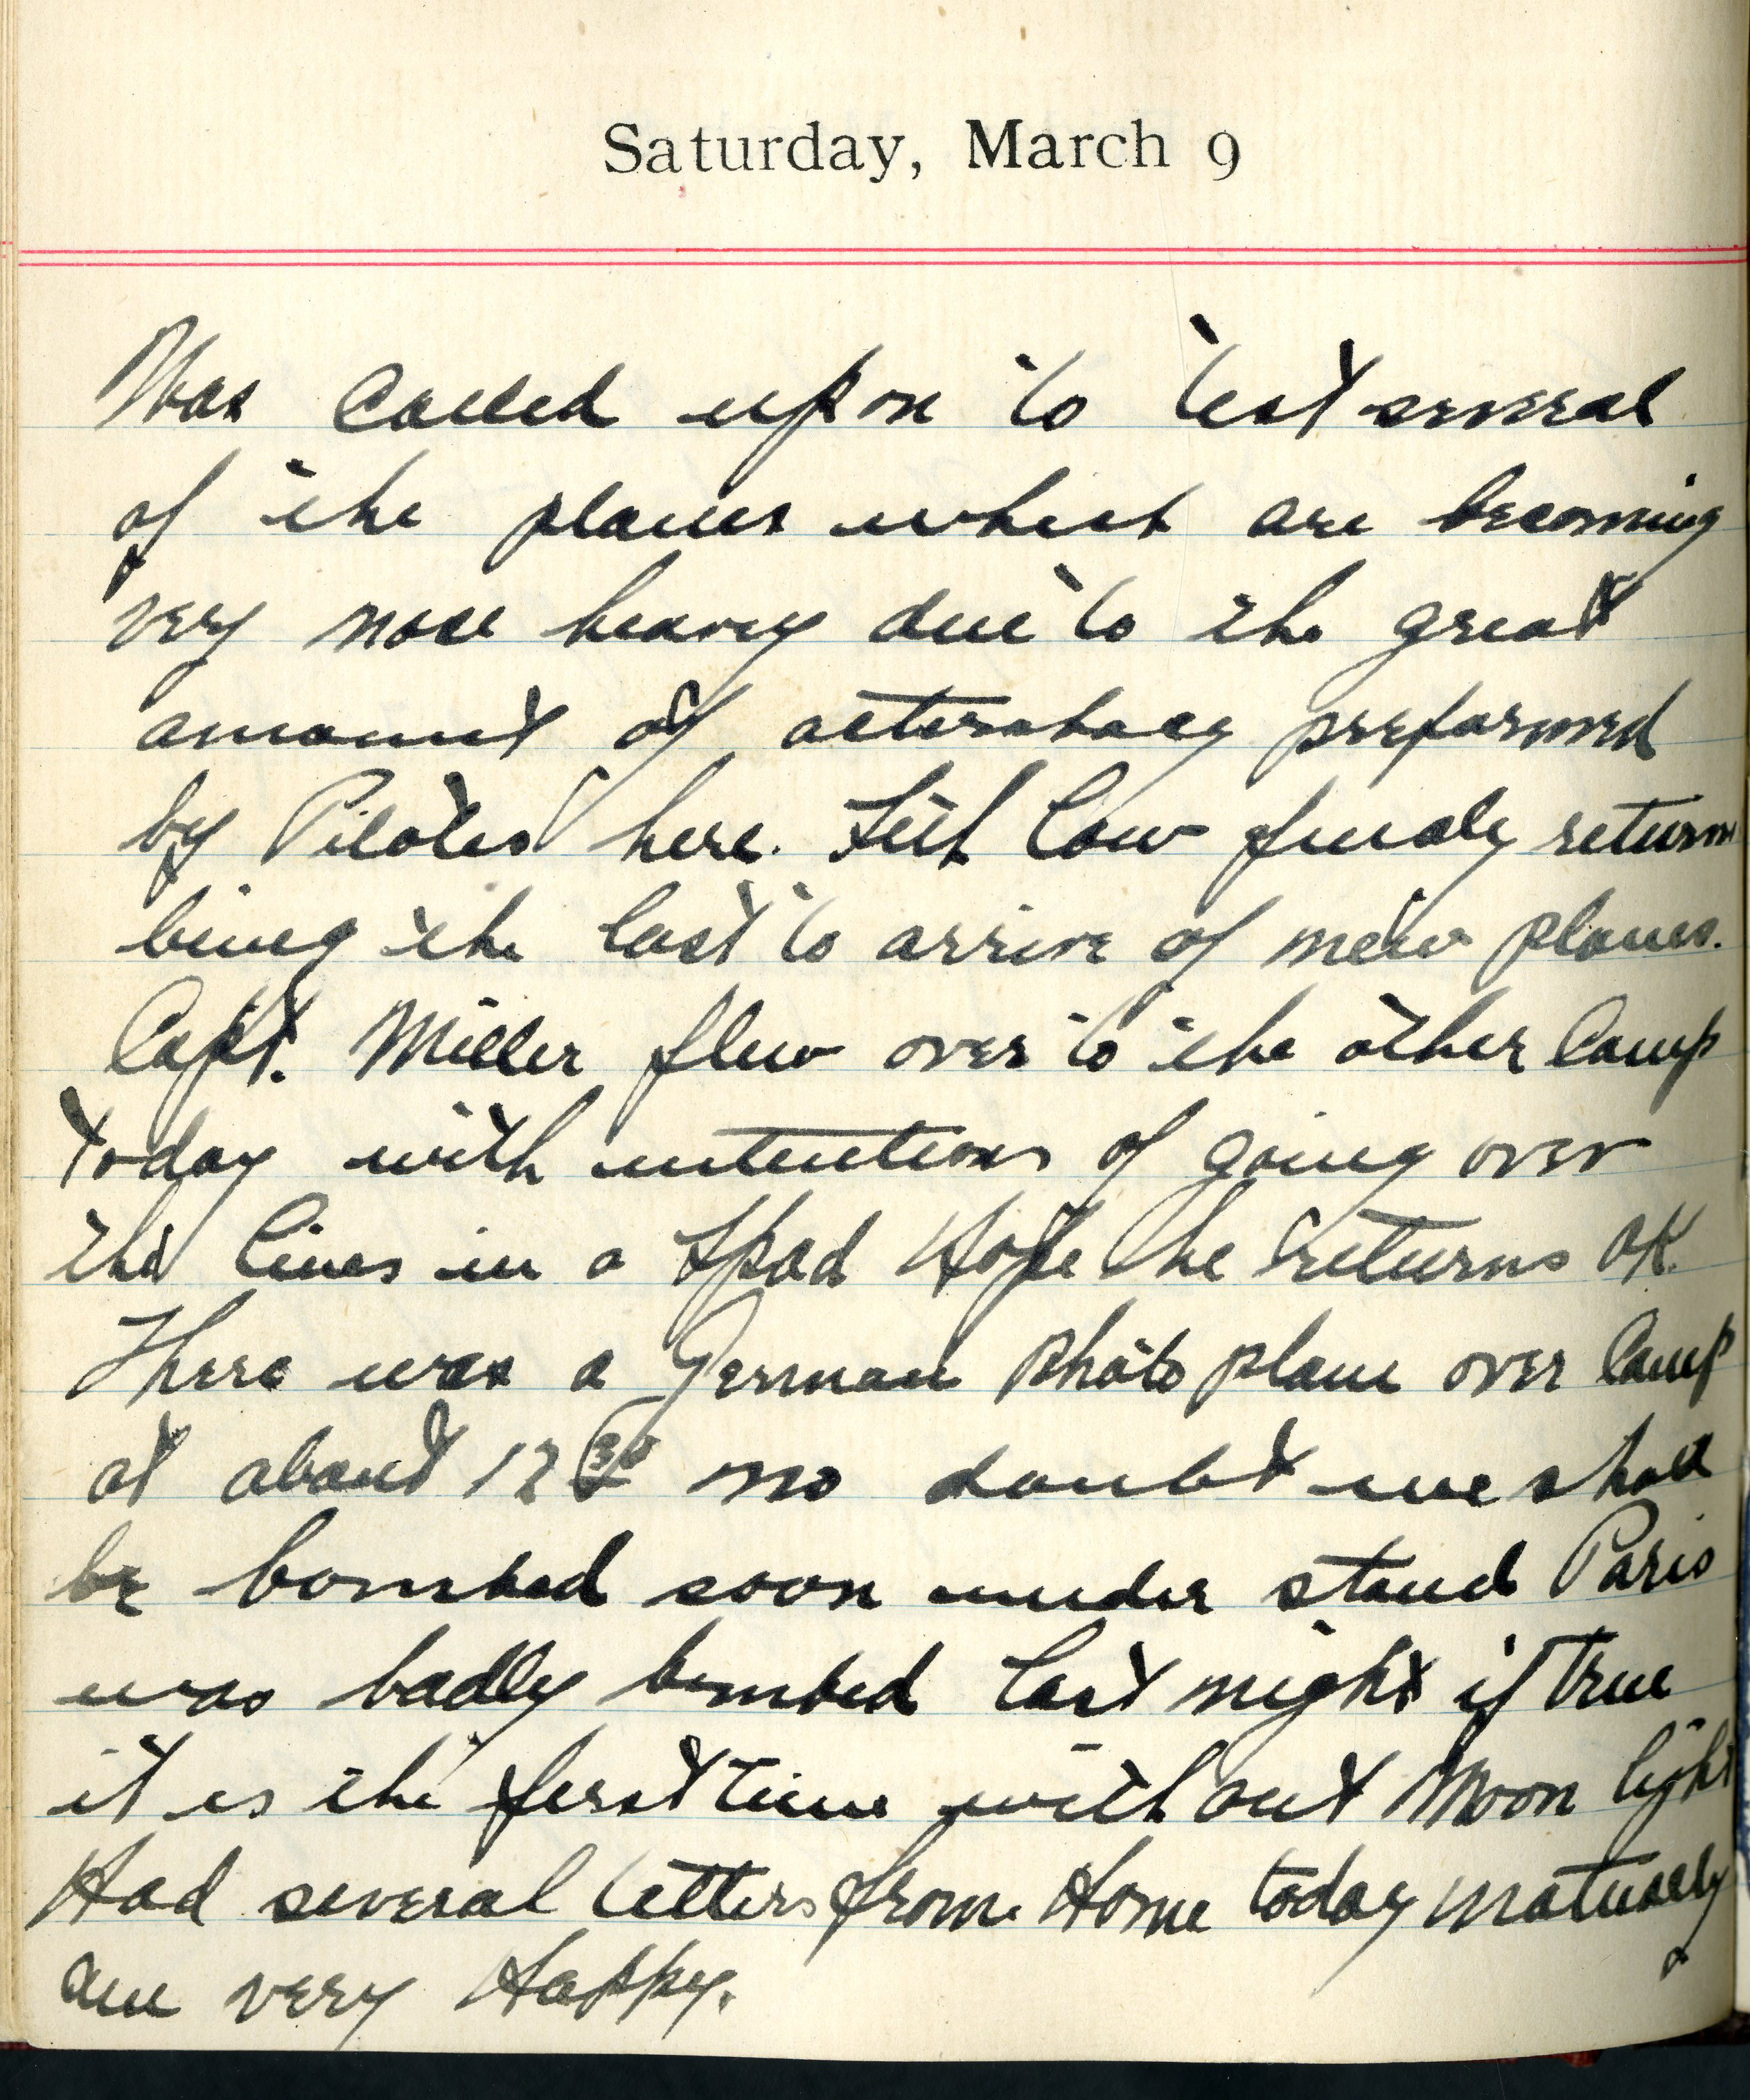 Saturday, March 9
Was called upon to test several
of the planes which are becoming
very nose heavy due to the great
amount of acterobacy preformed
by Pilotes here. Leit Cow finaly return
being the last to arrive of new planes.
Capt. Miller flew over to the other Camp
today with intentions of going over
the lines in a Spad Hope he returns OK.
There was a German Photo plane over Camp
at about 12 30 no doubt we shall
be bombed soon under stand Paris
was badly bombed last night if true
it is the first time without Moon light
Had several letters from Home today naturaly
am very Happy.